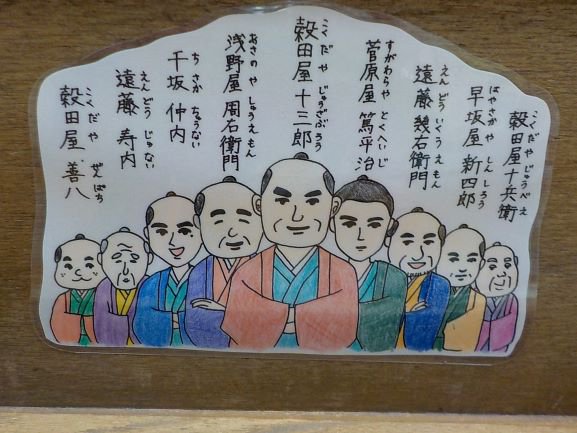 穀田屋十兵衛
こくだや じゅうべえ
早坂屋 新四郎
はやさかや しんしろう
遠藤 幾右衛門
えんどう いくうえもん
菅原屋 篤平治
すがわらや とくへいじ
穀田屋 十三郎
こくだや じゅうざぶろう
浅野屋 周右衛門
あさのや しゅうえもん
千坂 仲内
ちさか ちゅうない
遠藤 寿内
えんどう じゅない
穀田屋 善八
こくだや ぜんぱち